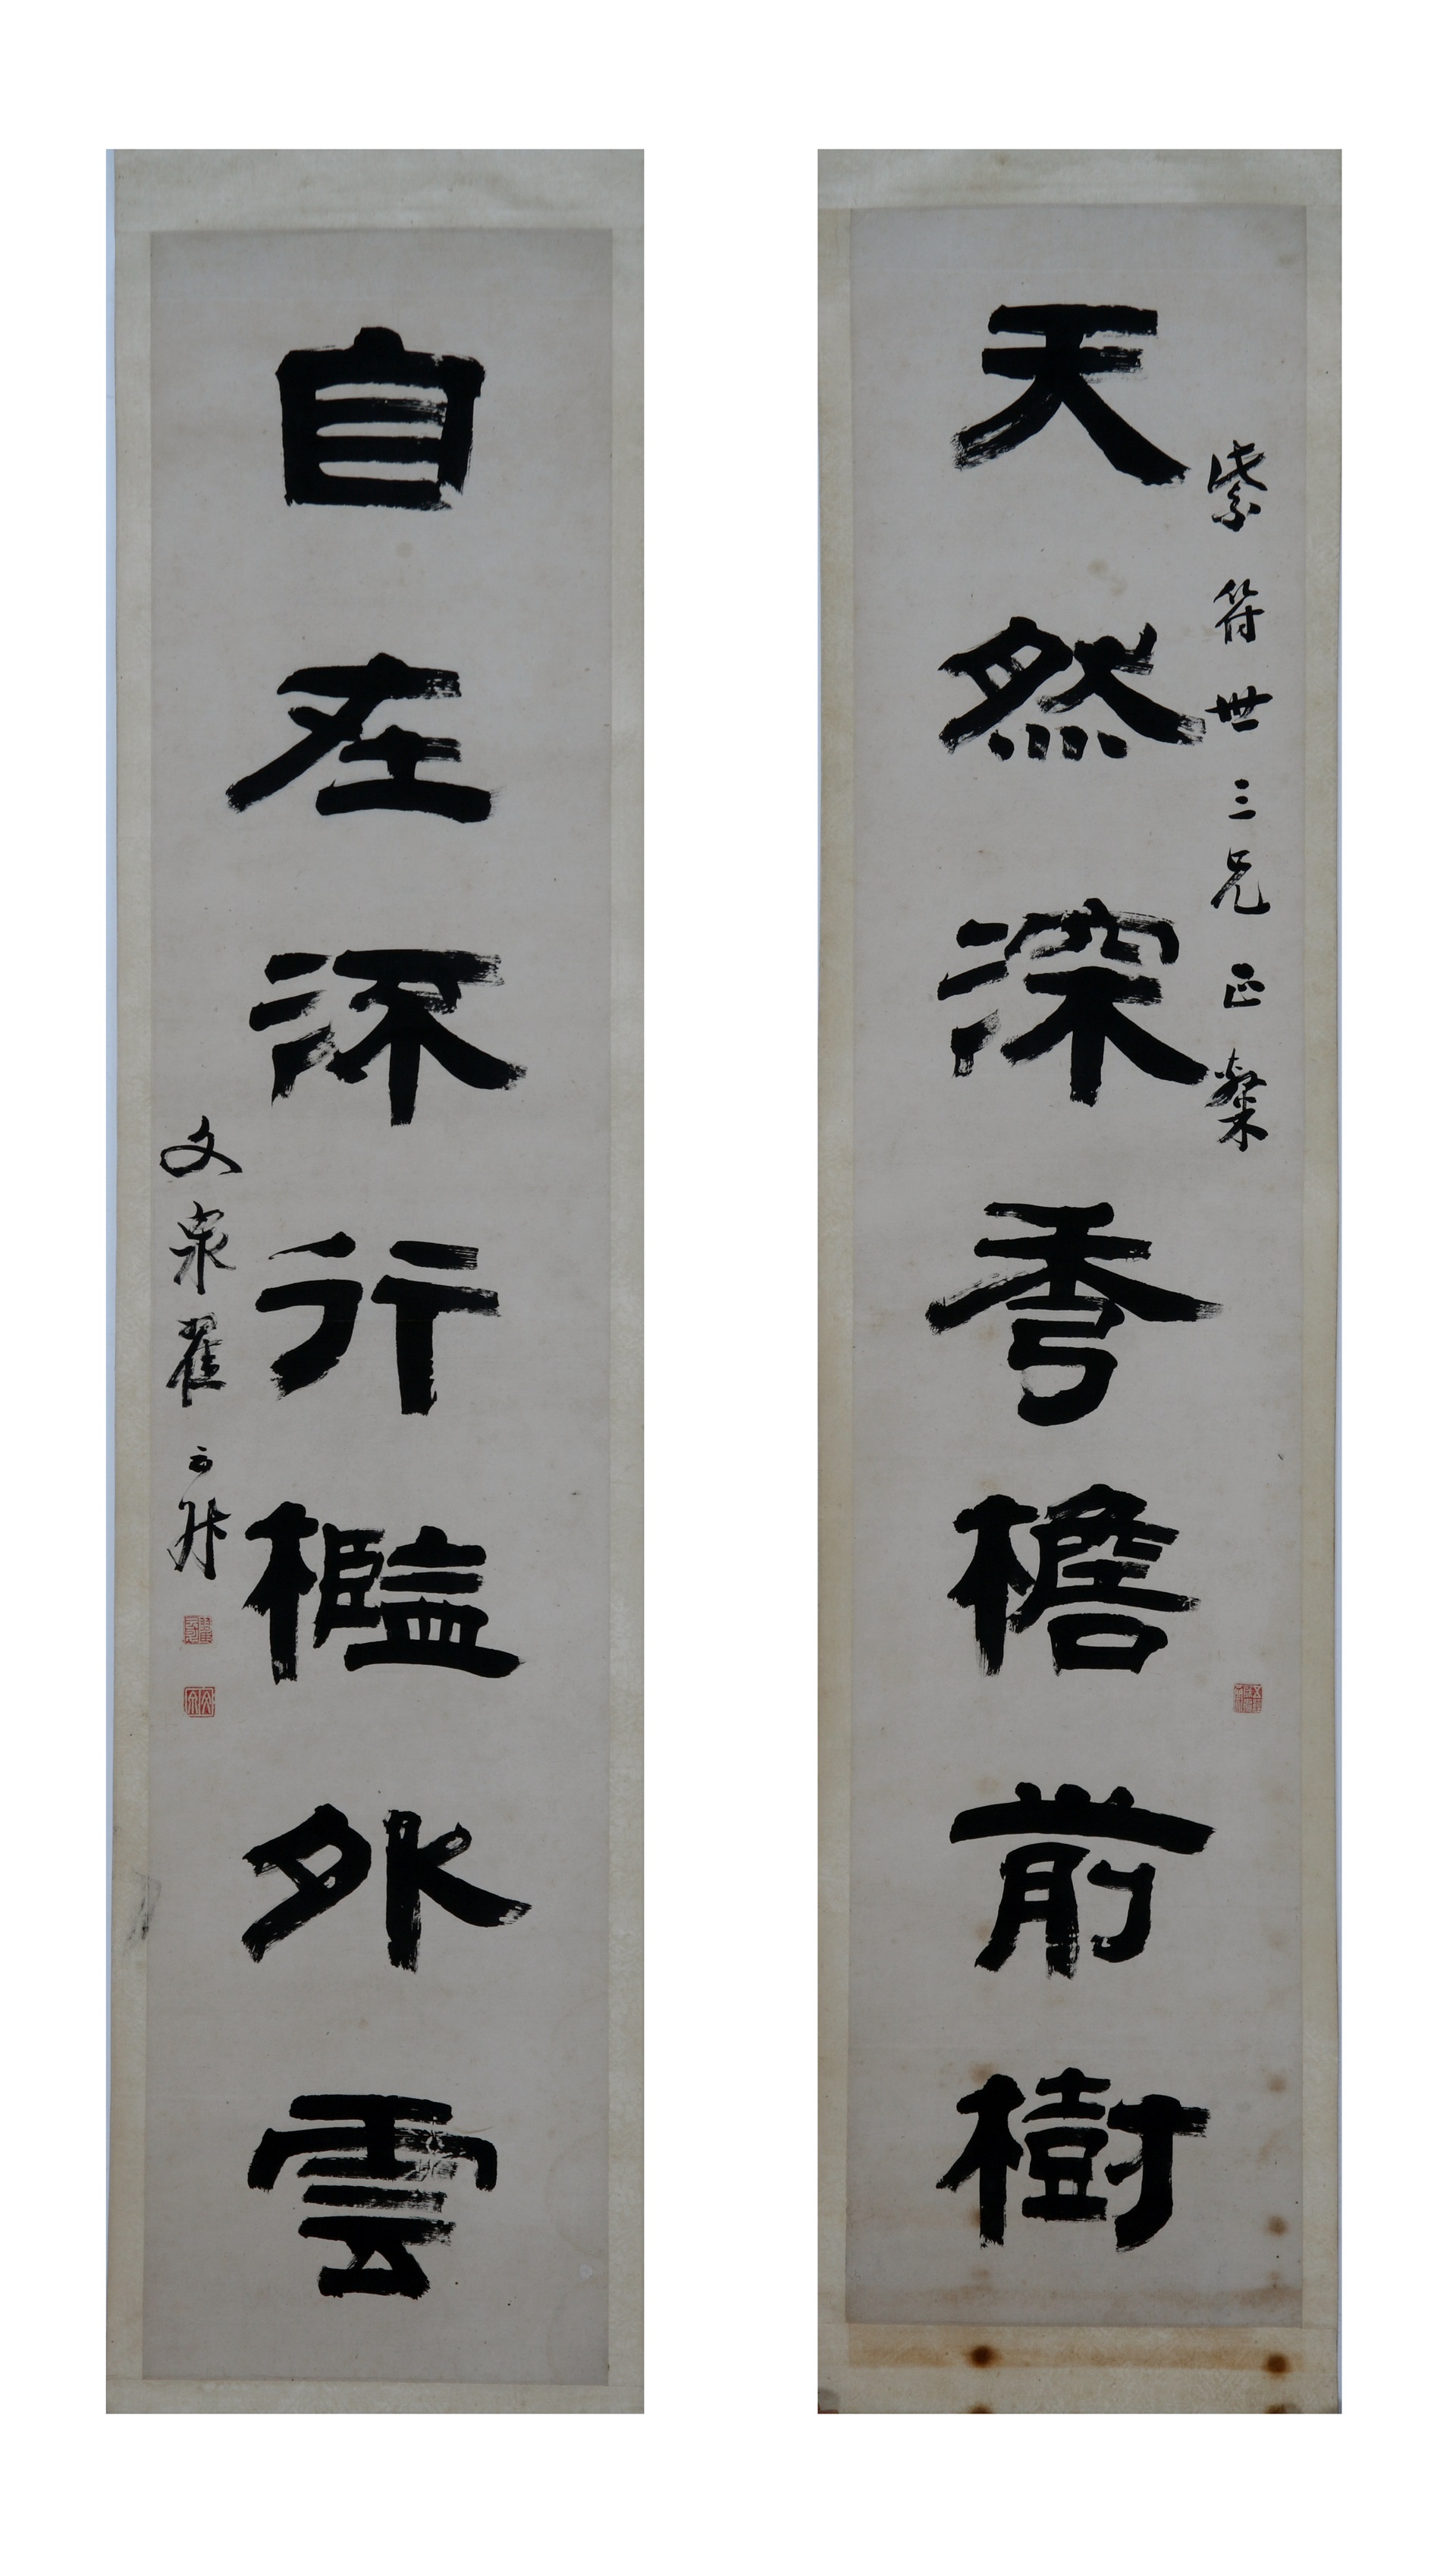 天然深秀檐前樹
紫符世三兄正粲
自在流行檻外雲
文泉翟云升